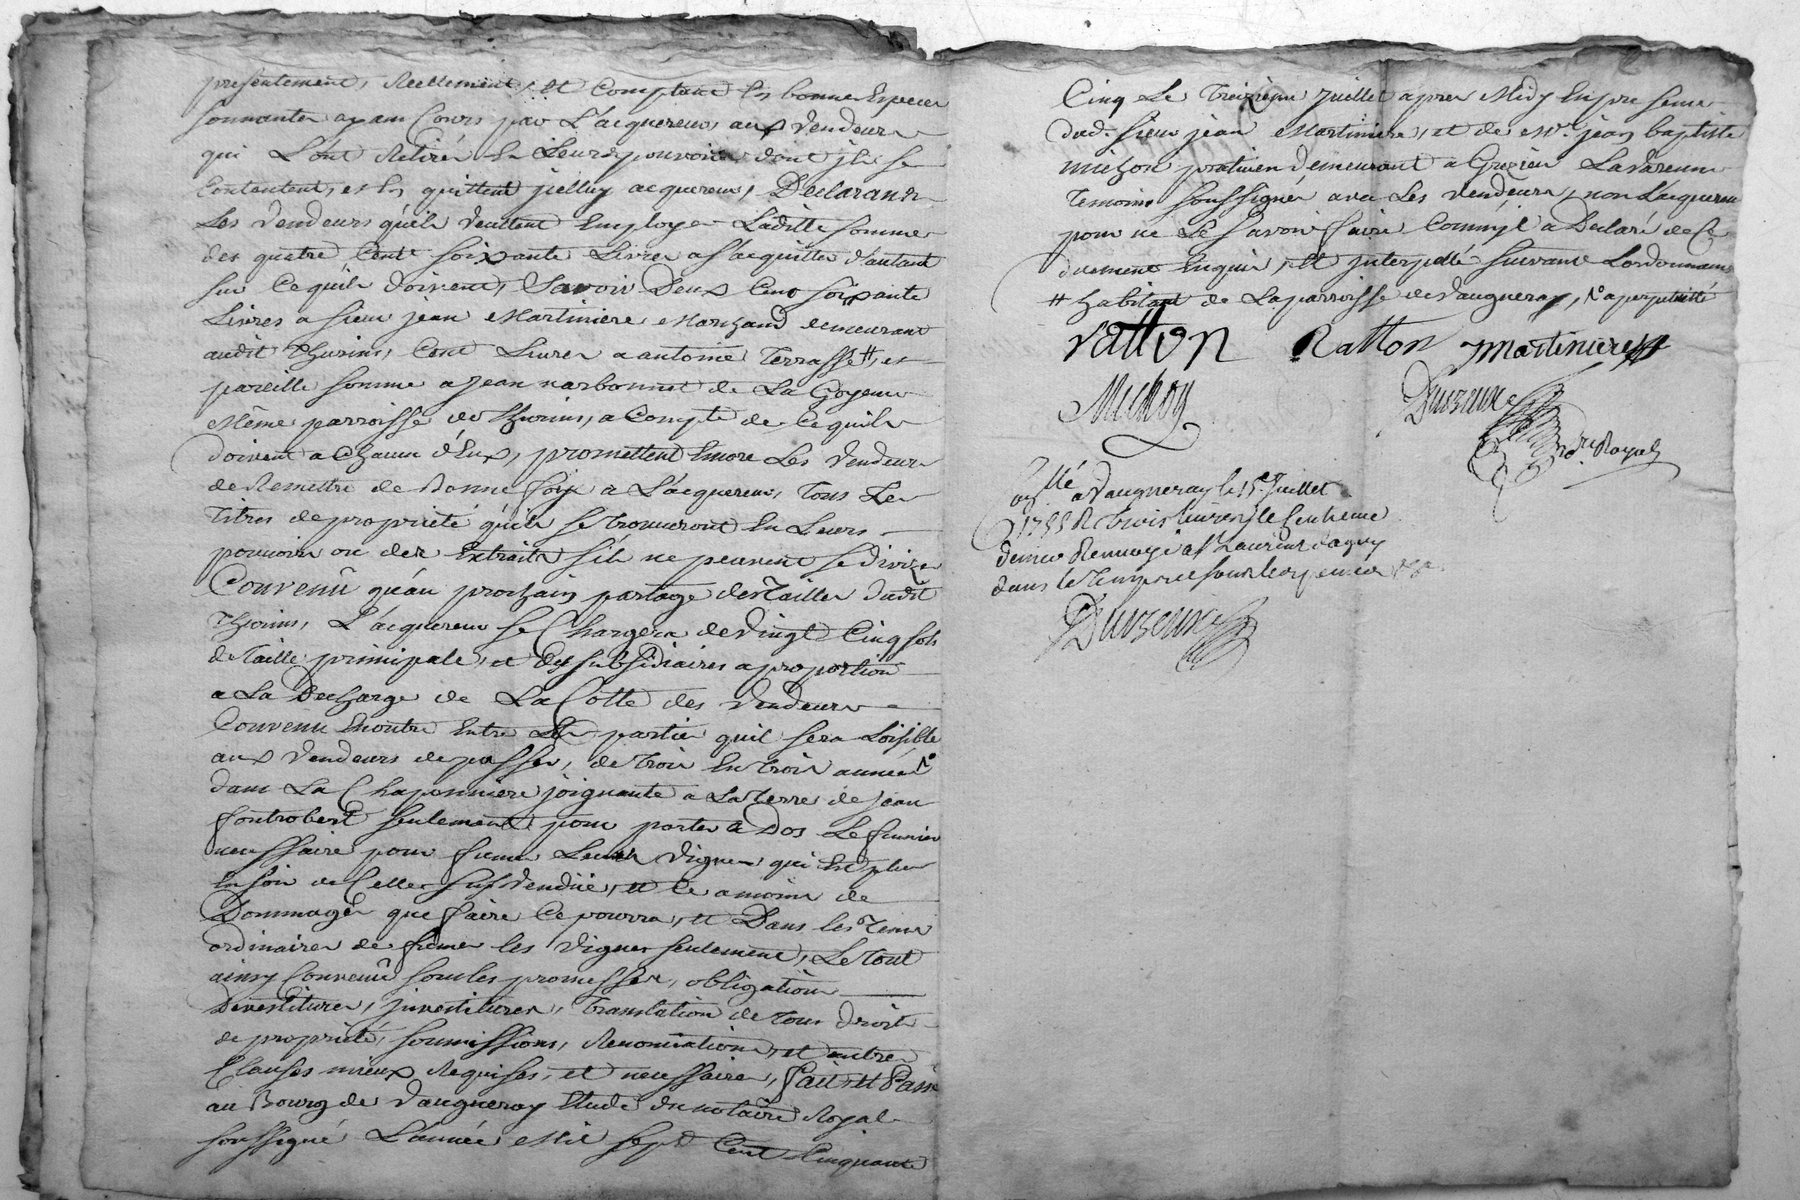 presentement, Reellement, et Comptant En bonnes Especes
sonnantes ayant Cours par L'acquereur aux Vendeurs
qui L'ont Retiré En Leurs pouvoirs dont jls se
Contentent, et En quittent jcelluy acquereur, Declarants
Les Vendeurs qu'ils veullent Employer Laditte somme
des quatre Cent soixante Livres a s'acquitter d'autant
sur Ce quils doivent, Savoir Deux Cent soixante
Livres a sieur jean Martiniere Marchand demeurant
audit Thurins, Cent Livres a antoine Terrasse #, et
pareille somme a jean narbonnet de La Goyenne
Même parroisse de Thurins, a Compte de Ce quils
doivent a Chacun d'Eux, promettent Encore Les Vendeurs
de Remettre de Bonne foix a L'acquereur, Tous Les
Titres de proprieté qu'ils se Trouveront En Leurs
pouvoirs ou des Extraits s'ils ne peuvent se diviser
Convenû qu'au prochain partage des Tailles dudit
Thurins, L'acquereur se Chargera de Vingt Cinq sols
de Taille principale, et des subsidiaires a proportion
a La Decharge de La Cotte des Vendeurs
Convenu Enoutre Entre Les parties quil sera Loisible
aux Vendeurs de passer, de trois En trois années
dans La Chaponniere joignante a La terre de jean
fontrobert seulement pour porter a Dos Le fumier
necessaire pour fumer Leurs Vignes qui Est plus
En soir de Celles susvendûe, et Ce a moins de
Dommages que faire Ce pourra, et Dans les Tems
ordinaires de fumer les Vignes seulement, Le Tout
ainsy Convenû sous les promesses, obligations
Devestitures, jnvestitures, Translation de Tous droits
de proprieté, soumissions, Renonciations, et autres
Clauses mieux Requises, et necessaires, fait, et Passé
au Bourg de Vaugneray Etude du notaire Royal
soussigné L'année Mil sept Cent Cinquante
Cinq Le Treizieme juillet apres Midy En presence
dud. sieur jean Martiniere, et de Mr. jean baptiste
michon praticien demeurant a Grezieu Lavarenne
Temoins soussignés avec Les Vendeurs, non L'acquereur
pour ne Le savoir faire Comm'jl a Declaré de Ce
duement Enquis, et jnterpellé suivant Lordonnance
# habitant de La parroisse de Vaugneray, a perpetuitté
ratton Ratton Martiniere
Michon
Duvzeux
Nore Royal
llé a Vaugneray le 15e Juillet
1755 R trois livres
denier Renvoyé a St Laurent dagny
dans le Tems
Duvzeux